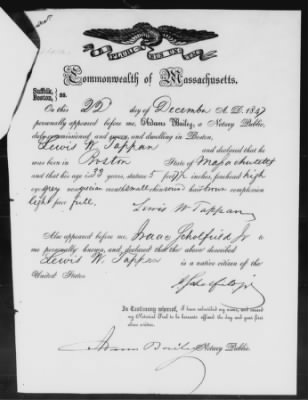 E PLURIBUS UNUM
Commonwealth of Massachusetts.
Suffolk,
Boston, } ss.
On this 22 day of December A. D. 1847
personally appeared before me Adams Bailey, a Notary Public,
duly commissioned and sworn, and dwelling in Boston,
Lewis W. Tappan and declared that he
was born in Boston State of Massachusetts
and that his age is 39 years, stature 5 feet inches, forehead high
eyes grey nose mouth small chin hair brown complexion
light face full.
Lewis W Tappan
Also appeared before me Isaac Scholfield Jr to
me personally known, and declared that the above described
Lewis W. Tappan is a native citizen of the
United States
In Testimony whereof, I have subscribed my name, and caused
my Notarial Seal to be hereunto affixed the day and year first
above written.
Adams Bailey Notary Public.